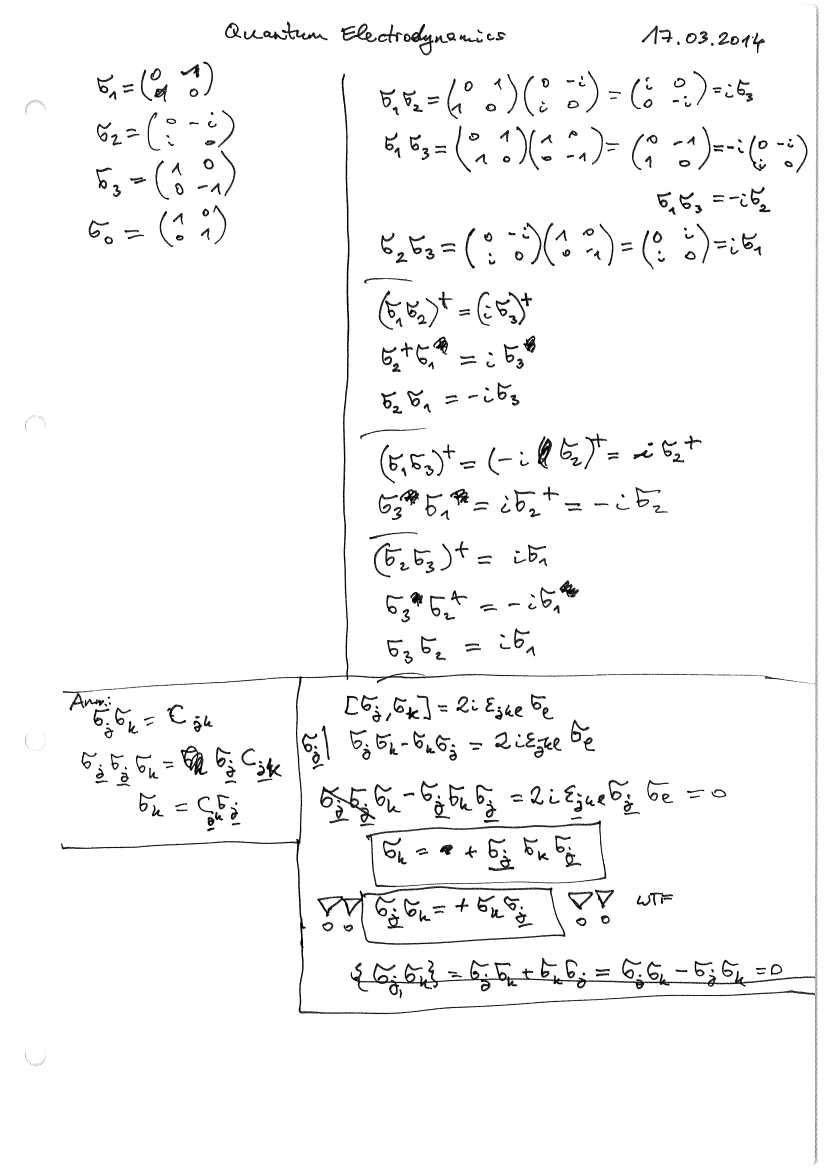 Quantum Electrodynamics 17.03.2014
σ₁ = (0 1; 1 0)
σ₂ = (0 -i; i 0)
σ₃ = (1 0; 0 -1)
σ₀ = (1 0; 0 1)
σ₁σ₂ = (0 1; 1 0)(0 -i; i 0) = (i 0; 0 -i) = iσ₃
σ₁σ₃ = (0 1; 1 0)(1 0; 0 -1) = (0 -1; 1 0) = -i(0 -i; i 0)
σ₁σ₃ = -iσ₂
σ₂σ₃ = (0 -i; i 0)(1 0; 0 -1) = (0 i; i 0) = iσ₁
(σ₁σ₂)⁺ = (iσ₃)⁺
σ₂⁺σ₁ = iσ₃
σ₂σ₁ = -iσ₃
(σ₁σ₃)⁺ = (-i σ₂)⁺ = iσ₂⁺
σ₃σ₁ = iσ₂⁺ = -iσ₂
(σ₂σ₃)⁺ = iσ₁
σ₃σ₂⁺ = -iσ₁
σ₃σ₂ = iσ₁
Anm:
σⱼσₖ = Cⱼₖ
σⱼσⱼσₖ = σⱼCⱼₖ
σₖ = Cⱼₖσⱼ
[σⱼ, σₖ] = 2iεⱼₖₑσₑ
σⱼ| σⱼσₖ - σₖσⱼ = 2iεⱼₖₑσₑ
σⱼσⱼσₖ - σⱼσₖσⱼ = 2iεⱼₖₑσⱼσₑ = 0
σₖ = + σⱼσₖσⱼ
σⱼσₖ = + σₖσⱼ WTF
{σⱼ, σₖ} = σⱼσₖ + σₖσⱼ = σⱼσₖ - σⱼσₖ = 0